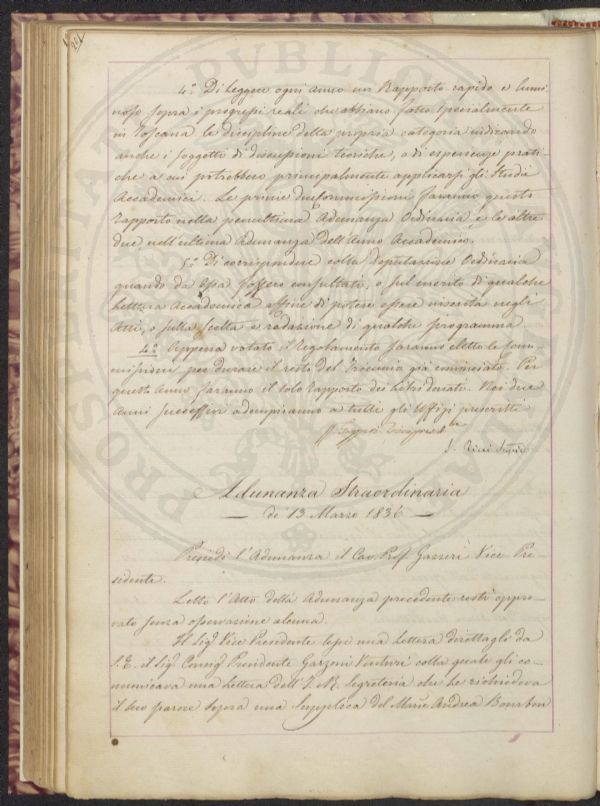 4.° Di Leggere ogni anno un Rapporto rapido e lumi-
noso sopra i progressi reali che abbiano fatto specialmente
in Toscana le discipline della propria categoria indicando
anche i soggetti di discussioni teoriche, o di esperienze prati-
che a cui potrebbero principalmente applicarsi gli Studi
Accademici. Le prime due Commissioni faranno questo
rapporto nella penultima Adunanza Ordinaria, e le altre
due nell'ultima Adunanza dell'Anno Accademico.
5.° Di corrispondere colla Deputazione Ordinaria
quando da Essa fossero consultati, o sul merito di qualche
Lettura Accademica affine di potere essere inserita negli
Atti, o sulla scelta e redazione di qualche programma.
4.° Appena votato il Regolamento saranno elette le Com-
missioni per durare il resto del Triennio già cominciato. Per
questo Anno faranno il solo rapporto dei Libri donati. Nei due
anni successivi adempiranno a tutti gli Uffizj prescritti
Adunanza Straordinaria
— de 13 Marzo 1836 —
Presiedè l'Adunanza il Cav. Prof. Gazzeri Vice Pre-
sidente.
Letto l'Atto della Adunanza precedente restò appro-
vato senza osservazione alcuna.
Il Sig. Vice Presidente lesse una lettera direttagli da
S. E. il Sig. Consig. Presidente Garzoni Venturi colla quale gli co-
municava una Lettera dell'I. e R. Segreteria che Le richiedeva
il suo parere sopra una Supplica del March. Andrea Bourbon